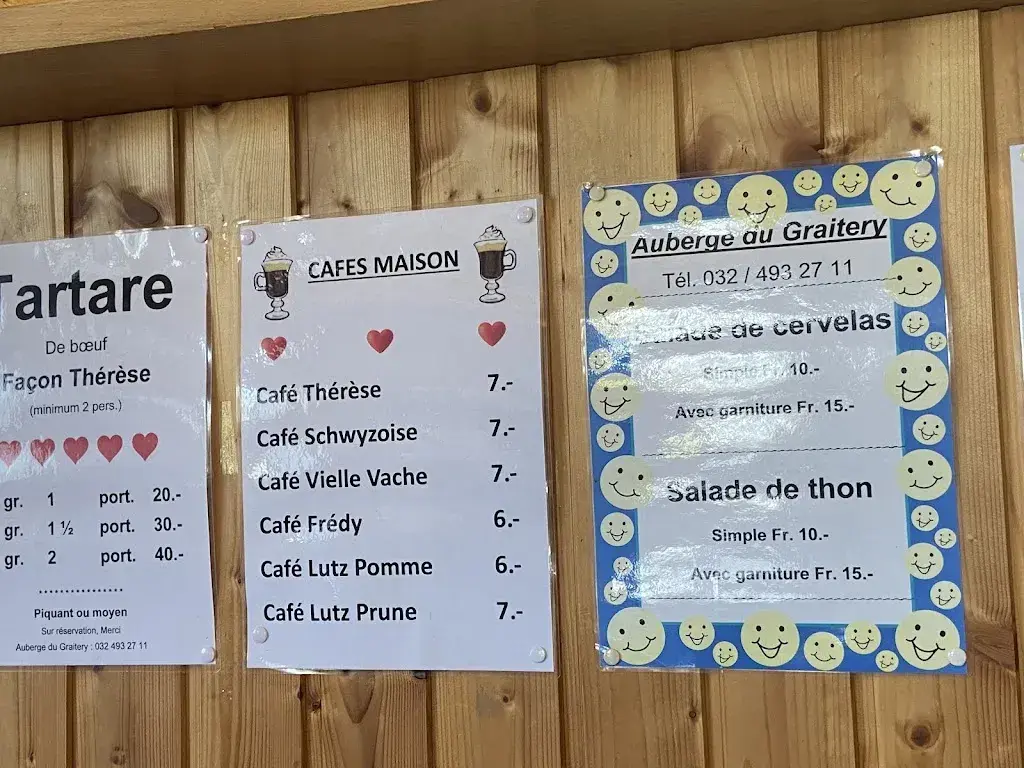 Tartare
De bœuf
Façon Thérèse
(minimum 2 pers.)
gr. 1 port. 20.-
gr. 1 ½ port. 30.-
gr. 2 port. 40.-
................
Piquant ou moyen
Sur réservation, Merci
Auberge du Graitery : 032 493 27 11
CAFES MAISON
Café Thérèse 7.-
Café Schwyzoise 7.-
Café Vielle Vache 7.-
Café Frédy 6.-
Café Lutz Pomme 6.-
Café Lutz Prune 7.-
Auberge du Graitery
Tél. 032 / 493 27 11
Salade de cervelas
Simple Fr. 10.-
Avec garniture Fr. 15.-
Salade de thon
Simple Fr. 10.-
Avec garniture Fr. 15.-